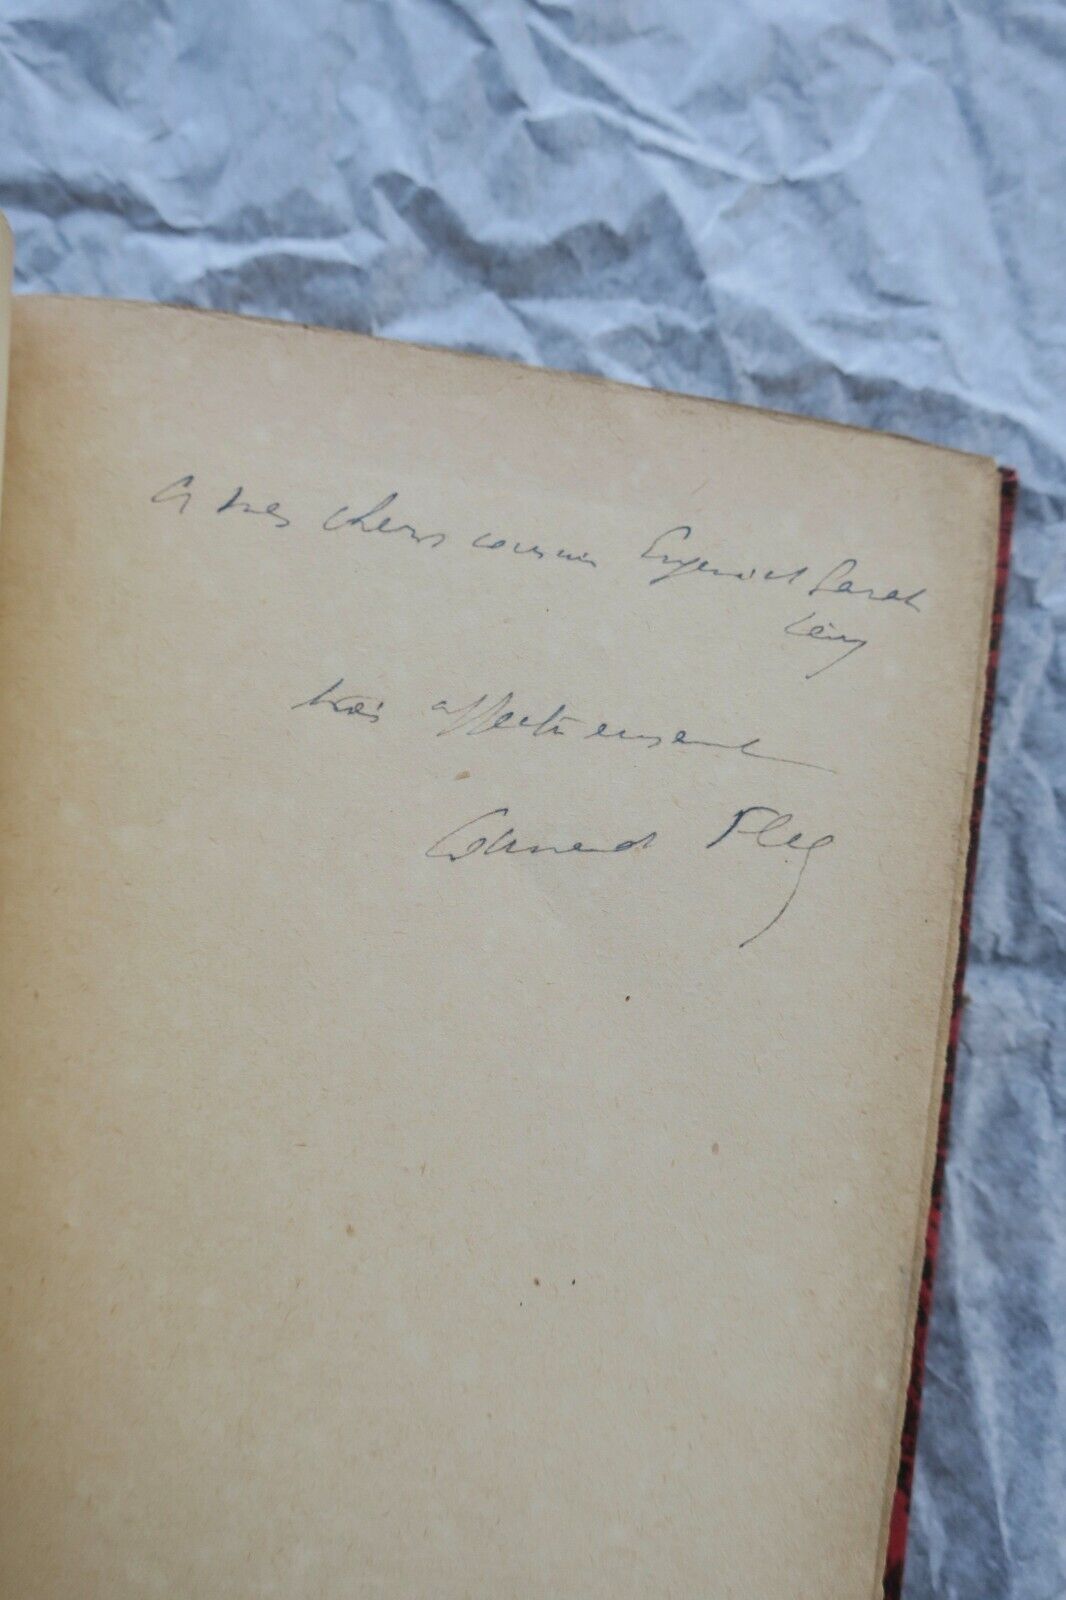 A mes chers cousins Eugène et Sarah
Lévy
très affectueusement
Edmond Fleg